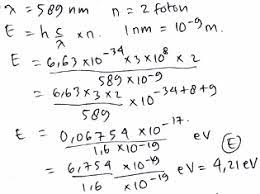 λ = 589 nm n = 2 foton
E = h c/λ × n. 1 nm = 10⁻⁹ m.
E = 6,63×10⁻³⁴ × 3×10⁸ × 2 / 589×10⁻⁹
= 6,63×3×2 / 589 ×10⁻³⁴⁺⁸⁺⁹
E = 0,06754 ×10⁻¹⁷ / 1,6 ×10⁻¹⁹ eV (E)
= 6,754 / 1,6 ×10⁻¹⁹ / ×10⁻¹⁹ eV = 4,21 eV